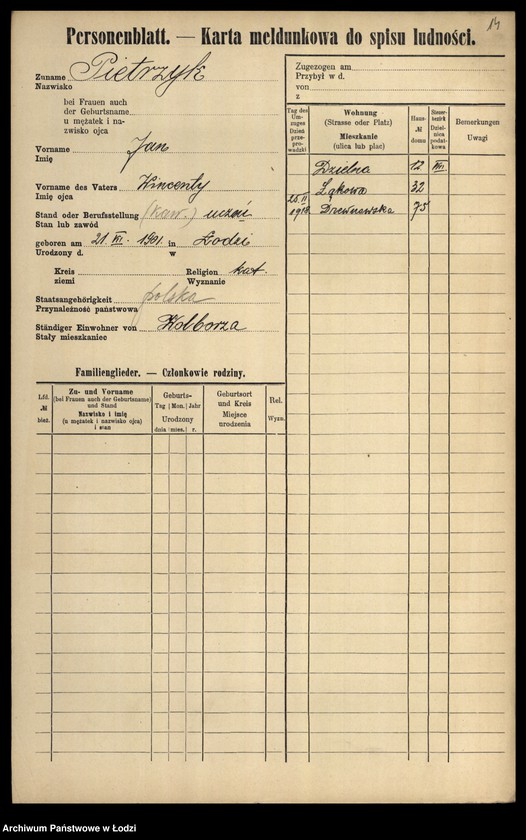 14
Personenblatt. — Karta meldunkowa do spisu ludności.
Zuname Pietrzyk
Nazwisko
bei Frauen auch
der Geburtsname
u mężatek i na-
zwisko ojca
Vorname Jan
Imię
Vorname des Vaters Wincenty
Imię ojca
Stand oder Berufsstellung (kaw.) uczeń
Stan lub zawód
geboren am 21. VI. 1901. in Łodzi
Urodzony d. w
Kreis Religion kat.
ziemi Wyznanie
Staatsangehörigkeit polska
Przynależność państwowa
Ständiger Einwohner von
Stały mieszkaniec
Zugezogen am
Przybył w d.
von
z
Tag des Um-zuges Dzień prze-prowadzki
Wohnung (Strasse oder Platz) Mieszkanie (ulica lub plac)
Haus- № domu
Steuer-bezirk Dziel-nica podat-kowa
Bemerkungen Uwagi
Dzielna 12
Łąkowa 32
Drewnowska 75
Familienglieder. — Członkowie rodziny.
Lfd. № bież.
Zu- und Vorname (bei Frauen auch der Geburtsname) und Stand Nazwisko i imię (u mężatek i nazwisko ojca) i stan
Geburts- Tag Mon. Jahr Urodzony dnia mies. r.
Geburtsort und Kreis Miejsce urodzenia
Rel. Wyzn.
Archiwum Państwowe w Łodzi